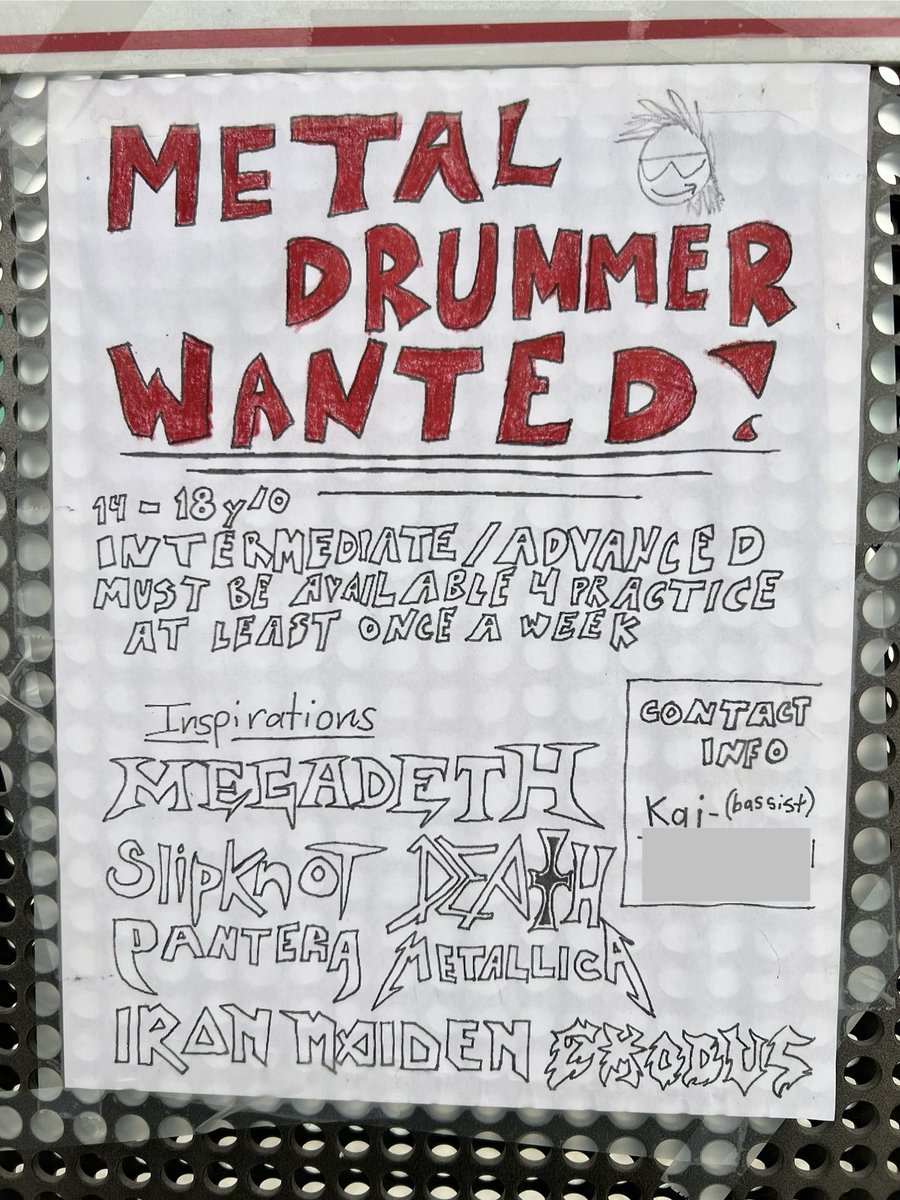 METAL
DRUMMER
WANTED!
14 - 18 y/o
INTERMEDIATE / ADVANCED
MUST BE AVAILABLE 4 PRACTICE
AT LEAST ONCE A WEEK
Inspirations
MEGADETH
SlipKnoT
DEATH
PANTERA
METALLICA
IRON MAIDEN
EXODUS
CONTACT
INFO
Kai - (bassist)